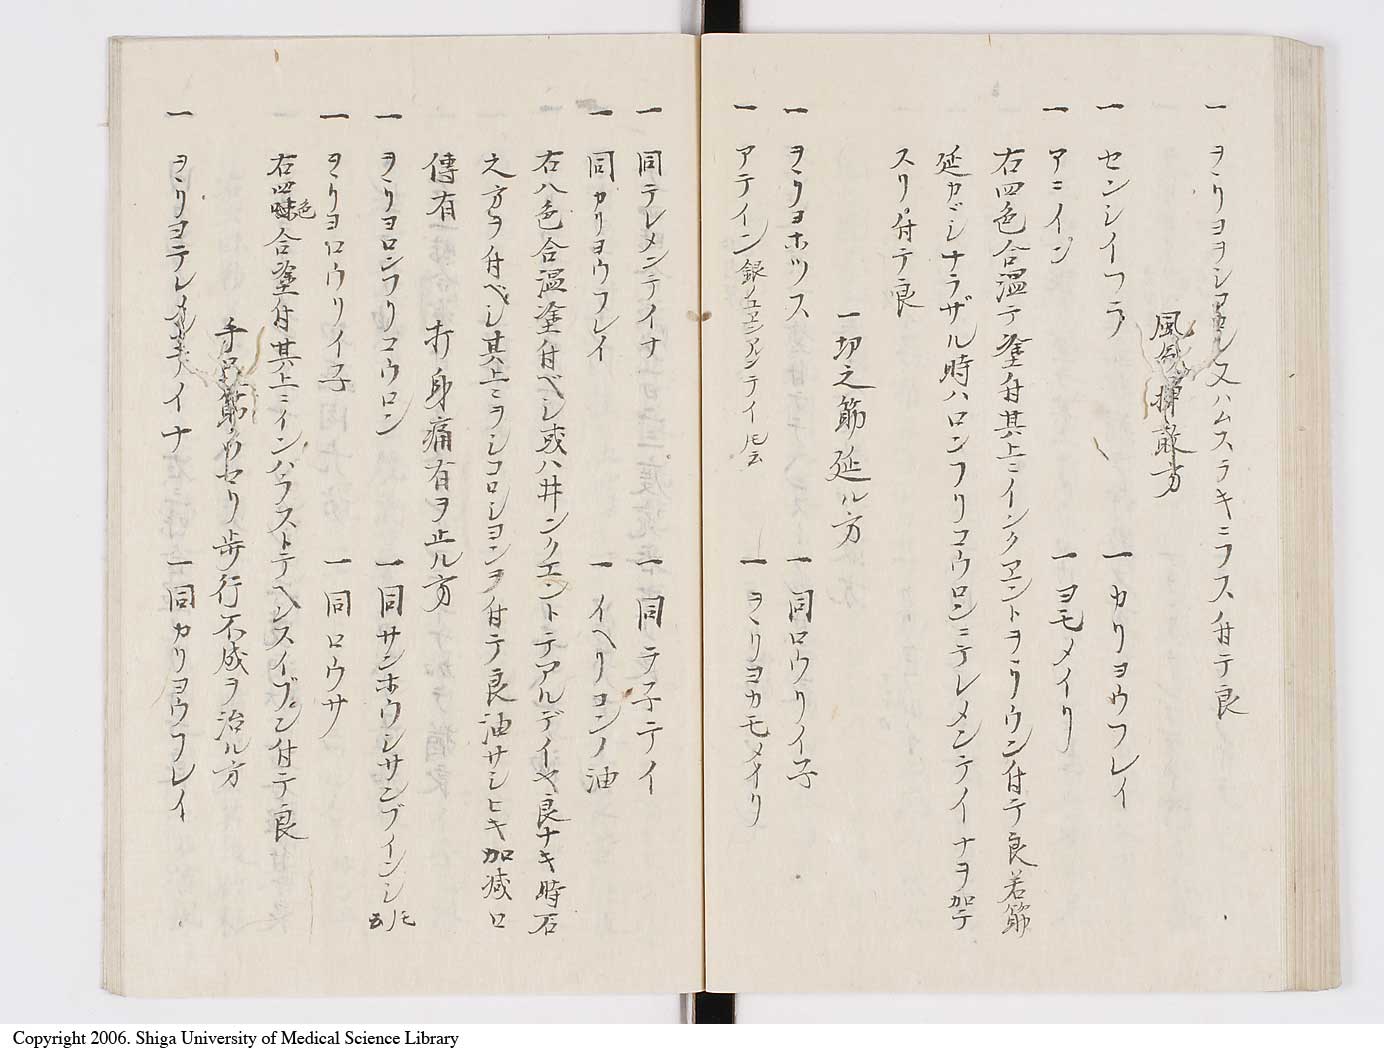 一 ヲヽリヨヲシヨロシ又ハムスラキニフス付テ良
風気掉散方
一 センシイフラ 一 カリヨウフレイ
一 アニイン 一 ヨモメイリ
右四色合温テ塗付其上ニインクヱントヲヽリウン付テ良若筋
延カヾシナラザル時ハロンフリコウロンニテレメンテイナヲ加テ
スリ付テ良
一切之筋延ル方
一 ヲヽリヨホツス 一 同ロウリイ子
一 アテイン 一 ヲヽリヨカモメイリ
一 同テレメンテイナ 一 同ラ子テイ
一 同カリヨウフレイ 一 イヘリコンノ油
右八色合温塗付ベシ或ハ井ンクエントテアルデイヤ良ナキ時石
之方ヲ付ベシ其上ニヲシコロシヨンヲ付テ良油サシヒキ加减口
傳有
打身痛有ヲ止ル方
一 ヲヽリヨロンフリコウロン 一 同サンホウシサンブインシ氏云
一 ヲヽリヨロウリイ子 一 同ロウサ
右四色合塗付其上ニインハラストテヘンスイブン付テ良
手足筋ウセリ歩行不成ヲ治ル方
一 ヲヽリヨテレメンテイナ 一 同カリヨウフレイ
Copyright 2006. Shiga University of Medical Science Library